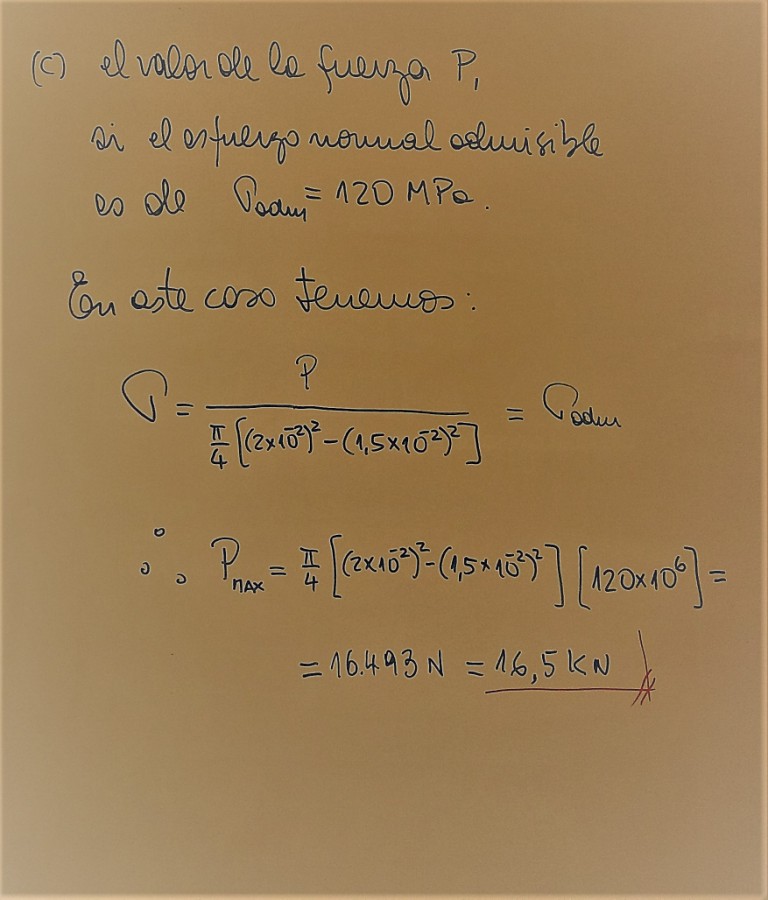 (C) el valor de la fuerza P,
si el esfuerzo normal admisible
es de σadm = 120 MPa.
En este caso tenemos:
σ = P / π/4 [(2×10⁻²)² - (1,5×10⁻²)²] = σadm
∴ PMAX = π/4 [(2×10⁻²)² - (1,5×10⁻²)²] [120×10⁶] =
= 16.493 N = 16,5 KN